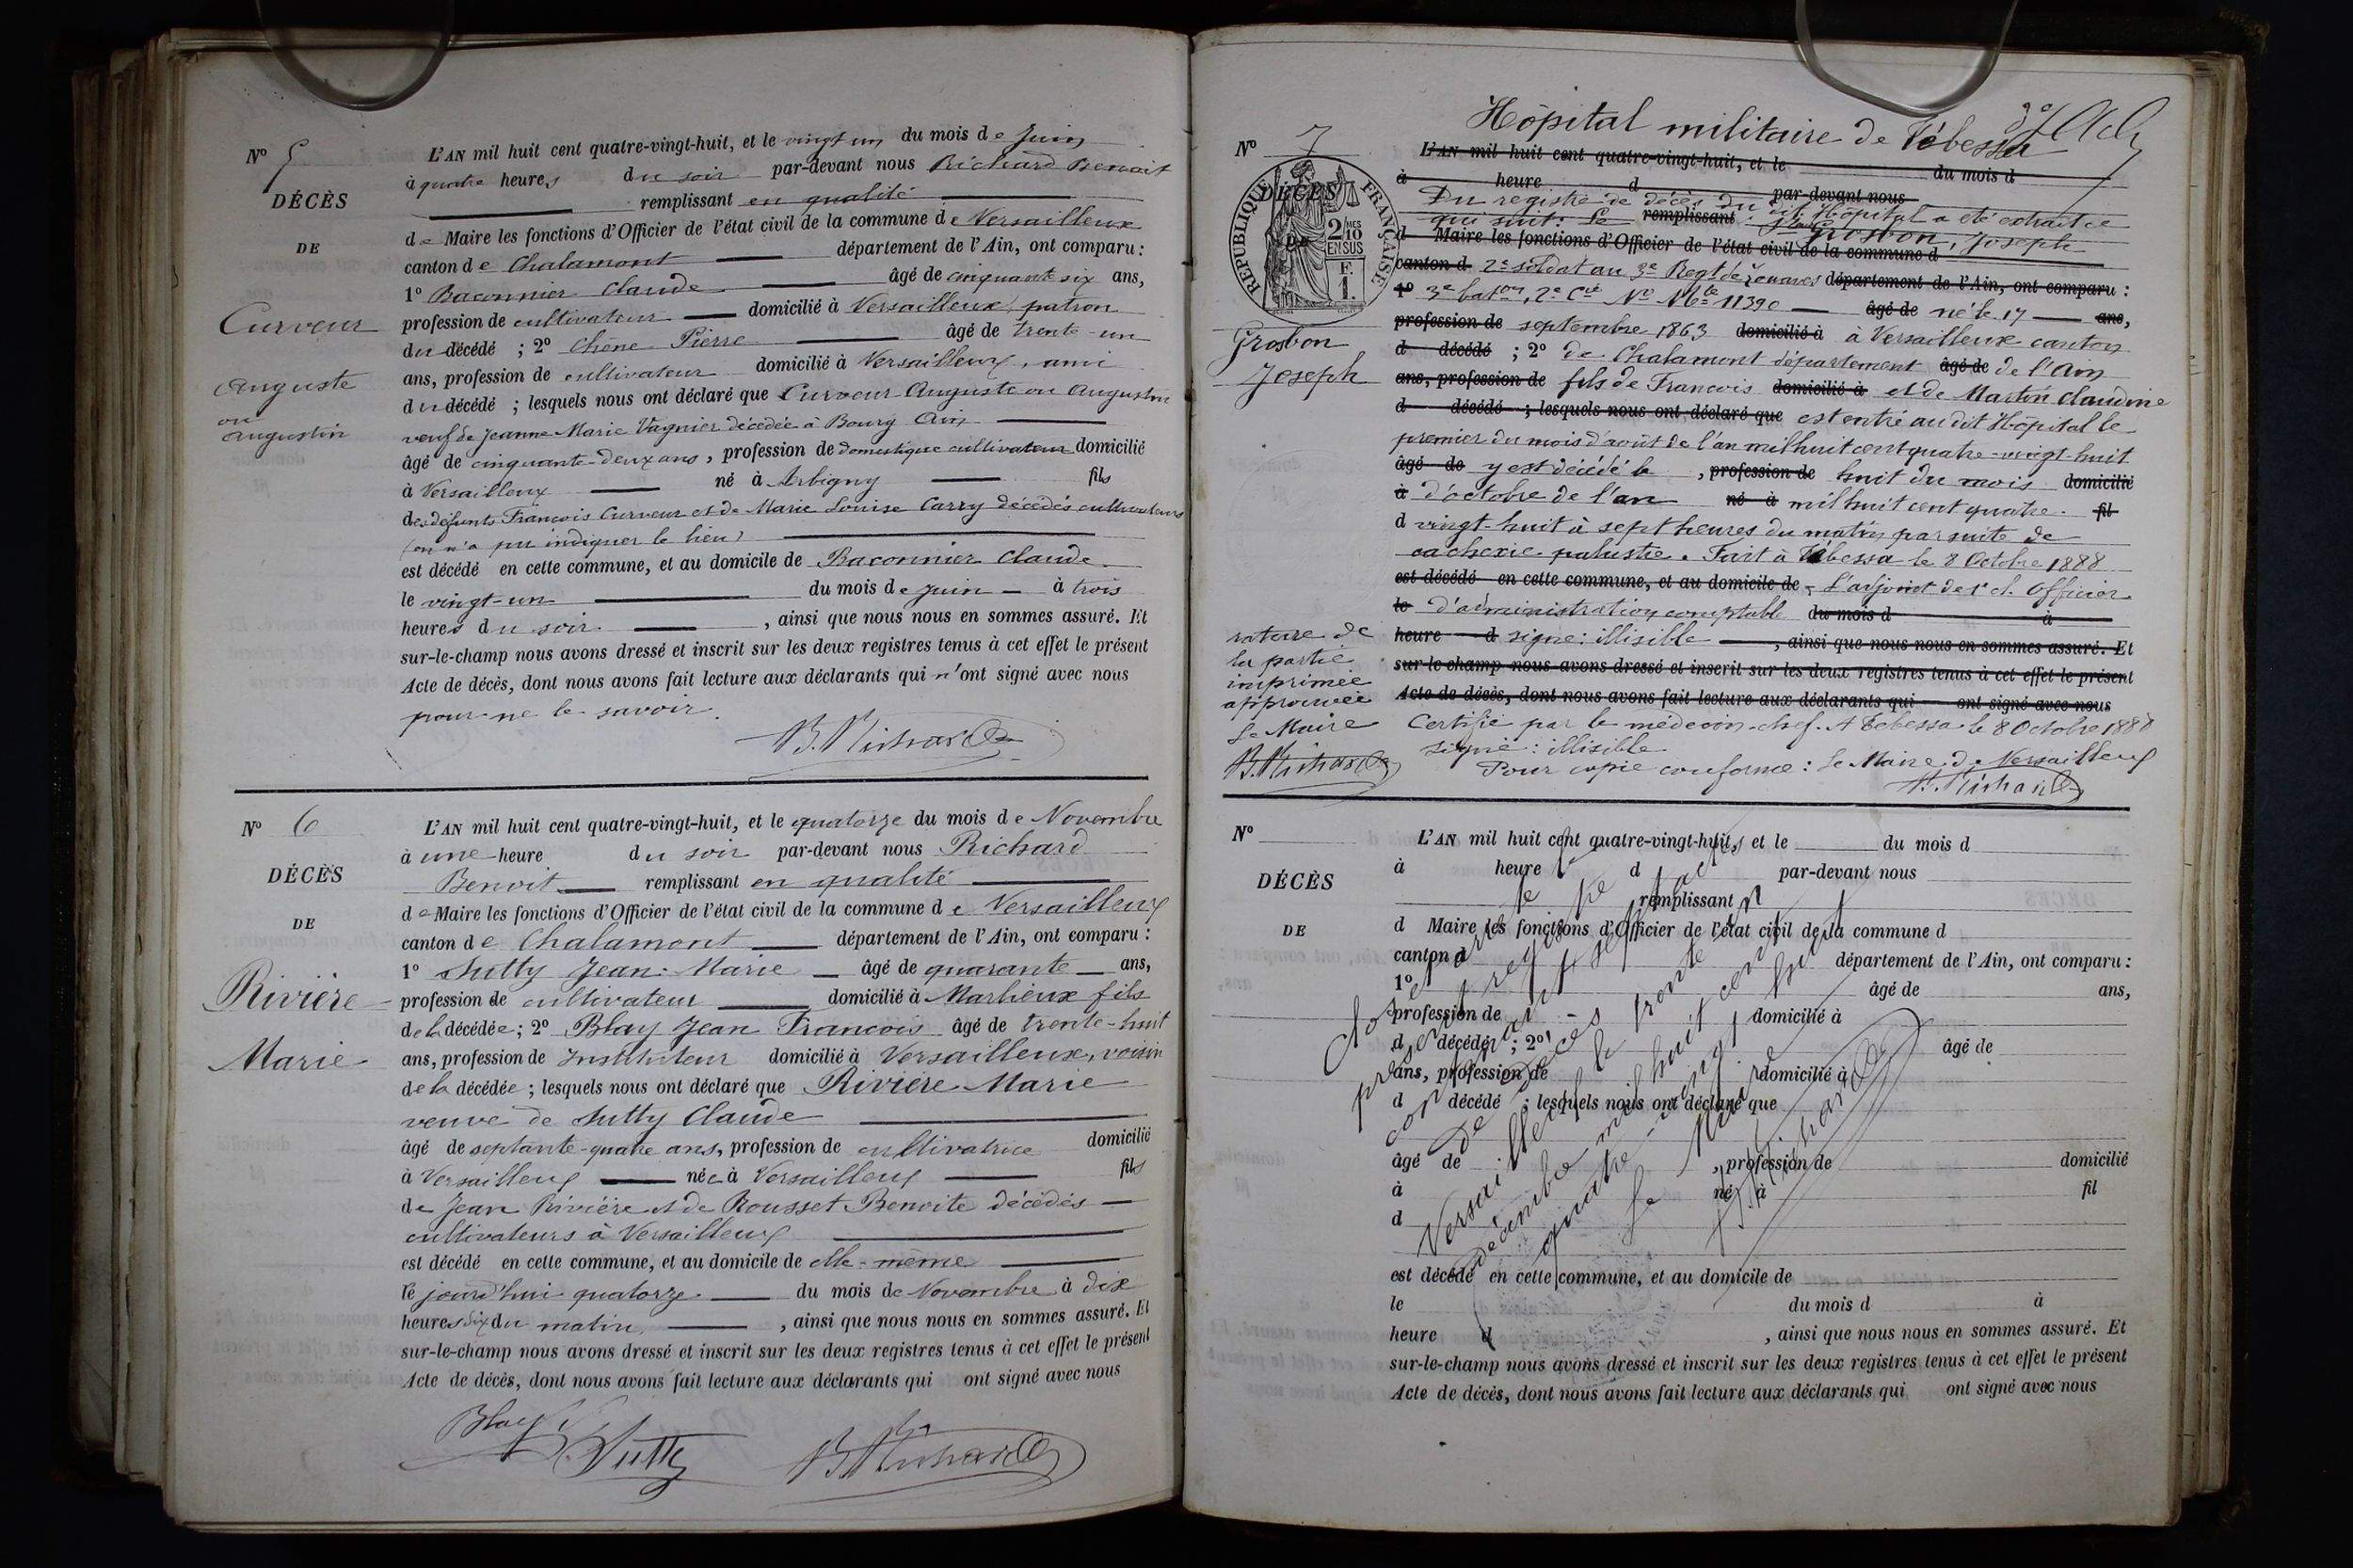 Nº 5
DÉCÈS
DE
Curveur
Auguste
ou
Augustin
L'AN mil huit cent quatre-vingt-huit, et le vingt un du mois de Juin
à quatre heures du soir par-devant nous Richard Benoit
remplissant en qualité
de Maire les fonctions d'Officier de l'état civil de la commune de Versailleux
canton de Chalamont département de l'Ain, ont comparu :
1º Baconnier Claude âgé de cinquante six ans,
profession de cultivateur domicilié à Versailleux, patron
du décédé ; 2º Chêne Pierre âgé de trente-un
ans, profession de cultivateur domicilié à Versailleux, ami
du décédé ; lesquels nous ont déclaré que Curveur Auguste ou Augustin
veuf de Jeanne Marie Vagnier décédée à Bourg Ain
âgé de cinquante-deux ans, profession de domestique cultivateur domicilié
à Versailleux né à Arbigny fils
des défunts François Curveur et de Marie Louise Carry décédés cultivateurs
(on n'a pu indiquer le lieu)
est décédé en cette commune, et au domicile de Baconnier Claude
le vingt-un du mois de Juin à trois
heures du soir , ainsi que nous nous en sommes assuré. Et
sur-le-champ nous avons dressé et inscrit sur les deux registres tenus à cet effet le présent
Acte de décès, dont nous avons fait lecture aux déclarants qui n'ont signé avec nous
pour ne le savoir.
B. Richard
Nº 6
DÉCÈS
DE
Rivière
Marie
L'AN mil huit cent quatre-vingt-huit, et le quatorze du mois de Novembre
à une heure du soir par-devant nous Richard
Benoit remplissant en qualité
de Maire les fonctions d'Officier de l'état civil de la commune de Versailleux
canton de Chalamont département de l'Ain, ont comparu :
1º Jutty Jean-Marie âgé de quarante ans,
profession de cultivateur domicilié à Marlieux fils
de la décédée ; 2º Blay Jean François âgé de trente-huit
ans, profession de Instituteur domicilié à Versailleux, voisin
de la décédée ; lesquels nous ont déclaré que Rivière Marie
veuve de Jutty Claude
âgé de septante-quatre ans, profession de cultivatrice domicilié
à Versailleux née à Versailleux fils
de Jean Rivière et de Rousset Benoite décédés
cultivateurs à Versailleux
est décédé en cette commune, et au domicile de elle-même
le jourd'hui quatorze du mois de Novembre à dix
heures dix du matin , ainsi que nous nous en sommes assuré. Et
sur-le-champ nous avons dressé et inscrit sur les deux registres tenus à cet effet le présent
Acte de décès, dont nous avons fait lecture aux déclarants qui ont signé avec nous
Blay
Jutty
B. Richard
Hôpital militaire de Tébessa
Nº 7
DÉCÈS
DE
RÉPUBLIQUE FRANÇAISE
2/10 MES
EN SUS
F.
1.
Grosbon
Joseph
L'AN mil huit cent quatre-vingt-huit, et le du mois d
à heure d par-devant nous
Du registre de décès du dit Hôpital a été extrait ce
qui suit: Le remplissant
Grosbon, Joseph
d Maire les fonctions d'Officier de l'état civil de la commune d
canton d 2e soldat au 3e Regt de Zouaves département de l'Ain, ont comparu :
1º 3e baton, 2e Cie Nº Mle 11390 âgé de né le 17 ans,
profession de septembre 1863 domicilié à à Versailleux canton
d décédé ; 2º de Chalamont département âgé de de l'Ain
ans, profession de fils de François domicilié à et de Martin Claudine
d décédé ; lesquels nous ont déclaré que est entré au dit Hôpital le
premier du mois d'août de l'an mil huit cent quatre-vingt-huit
âgé de y est décédé le , profession de huit du mois domicilié
à d'octobre de l'an né à mil huit cent quatre- fil
d vingt-huit à sept heures du matin par suite de
cachexie palustre. Fait à Tébessa le 8 Octobre 1888
est décédé en cette commune, et au domicile de L'adjoint de 1e cl. Officier
le d'administration comptable du mois d à
heure d signé: illisible , ainsi que nous nous en sommes assuré. Et
sur-le-champ nous avons dressé et inscrit sur les deux registres tenus à cet effet le présent
Acte de décès, dont nous avons fait lecture aux déclarants qui ont signé avec nous
Certifié par le médecin-chef. A Tebessa le 8 Octobre 1888
signé: illisible
Pour copie conforme: Le Maire de Versailleux
B. Richard
rature de
la partie
imprimée
approuvée
Le Maire
B. Richard
Nº
DÉCÈS
DE
L'AN mil huit cent quatre-vingt-huit, et le du mois d
à heure d par-devant nous
remplissant
d Maire les fonctions d'Officier de l'état civil de la commune d
canton d département de l'Ain, ont comparu :
1º âgé de ans,
profession de domicilié à
d décédé ; 2º âgé de
ans, profession de domicilié à
d décédé ; lesquels nous ont déclaré que
âgé de , profession de domicilié
à né à fil
d
est décédé en cette commune, et au domicile de
le du mois d à
heure d , ainsi que nous nous en sommes assuré. Et
sur-le-champ nous avons dressé et inscrit sur les deux registres tenus à cet effet le présent
Acte de décès, dont nous avons fait lecture aux déclarants qui ont signé avec nous
Clos et arrêté le
présent registre
contenant sept actes
de décès
Versailleux le trente un
décembre mil huit cent
quatre-vingt huit
Le Maire
B. Richard